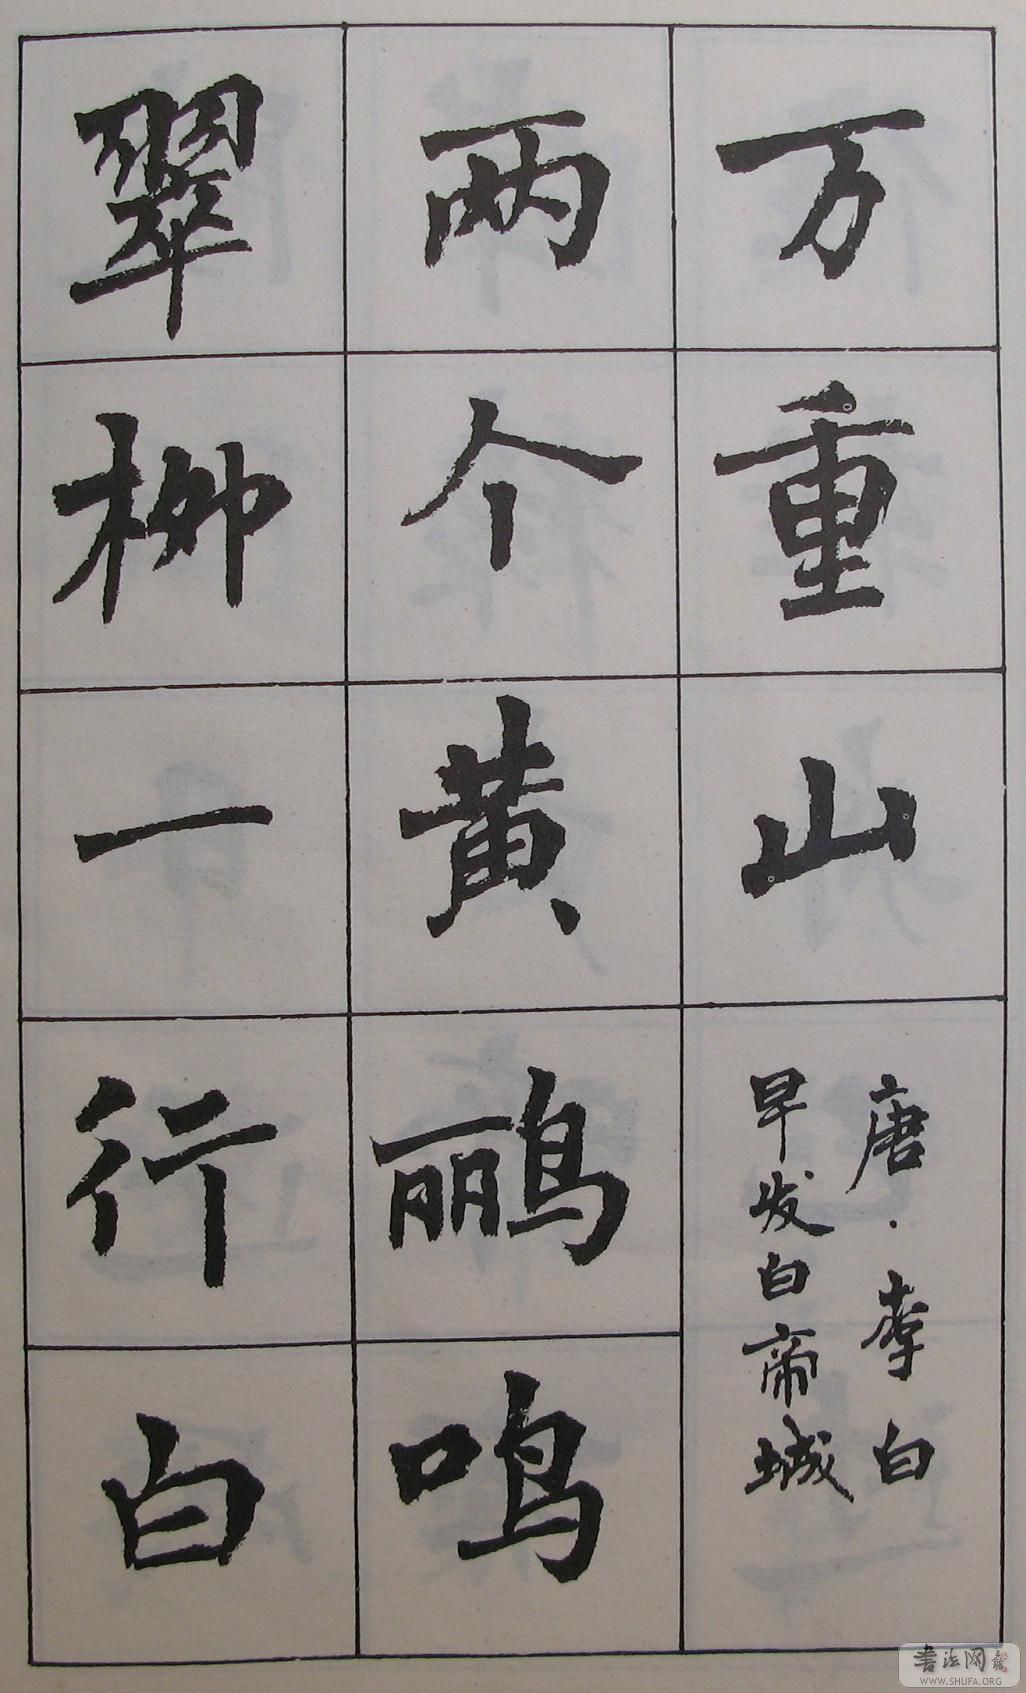 万重山
唐·李白
早发白帝城
两个黄鹂鸣
翠柳一行白
书法网
WWW.SHUFA.ORG